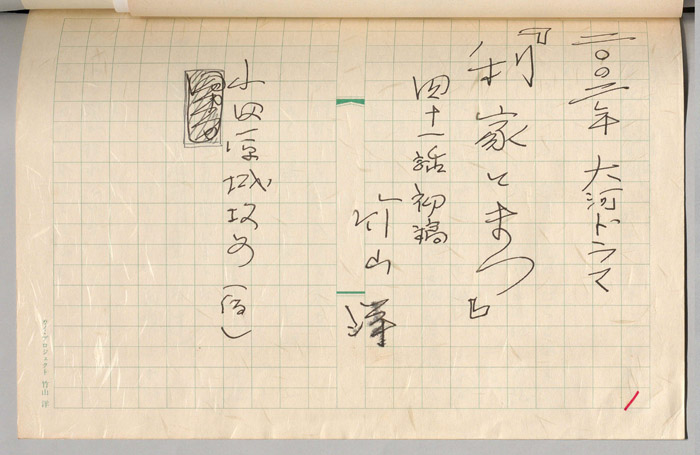 二〇〇二年 大河ドラマ
『利家とまつ』
四十一話 初稿
竹山 洋
小田原城攻め（仮）
竹山 洋